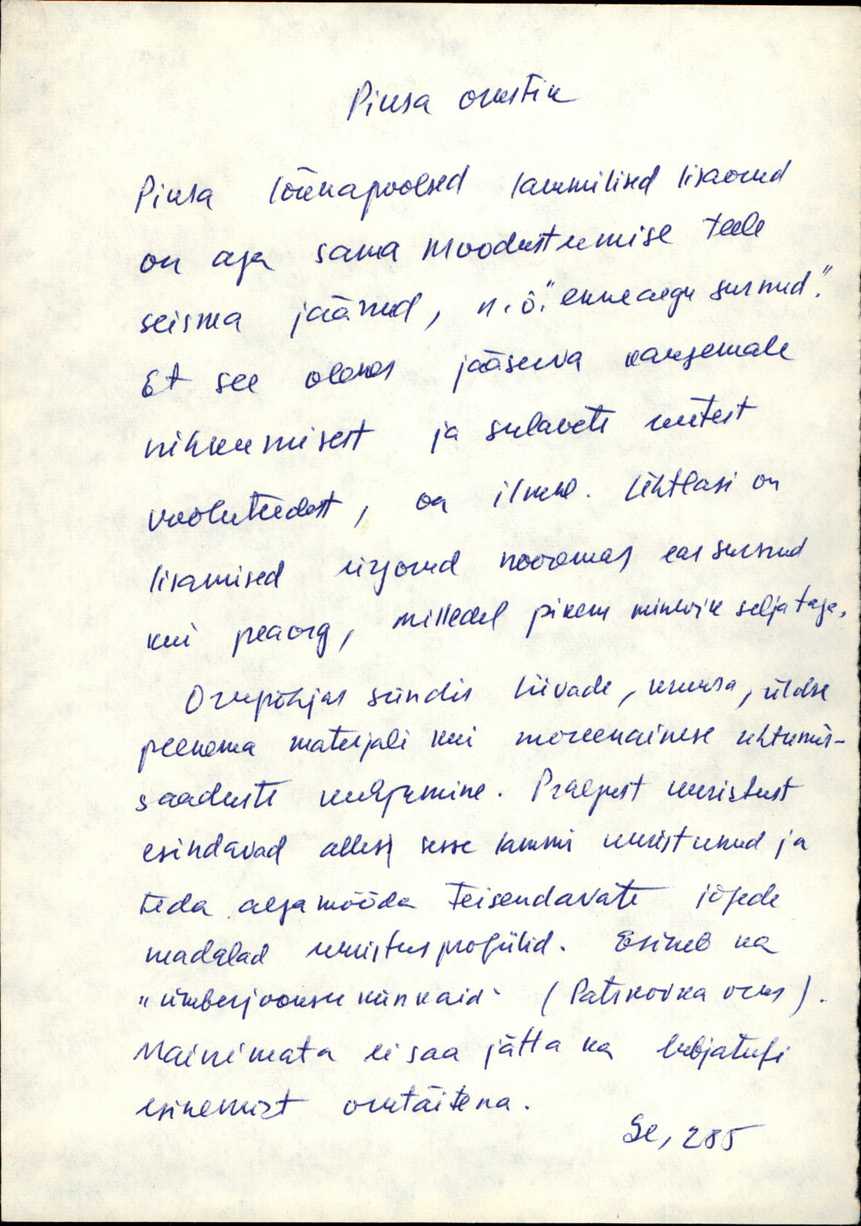 Piusa orustik
Piusa läänepoolsed lammilised lisaorud
on aga sama moodustumise teele
seisma jäänud, n.ö. "enneaegu surnud".
Et see oleneb jääserva kaugemale
nihkumisest ja sulavete uutest
vooluteedest, on ilmne. Ühtlasi on
lisamised ürgorud nooremas eas surnud
kui peaorg, milledel pikem minevik seljataga.
Orupõhjas sündis liivade, kruusa, üldse
peenema materjali kui moreenainese uhtumis-
saaduste kuhjumine. Praegust uuristust
esindavad alles sesse lammi uuristunud ja
teda aegamööda teisendavate jõgede
madalad uuristusprofiilid. Esineb ka
"ümberjooksu künkaid" (Patskovka orus).
Mainimata ei saa jätta ka lubjatufi
esinemist orutäitena.
Se, 285